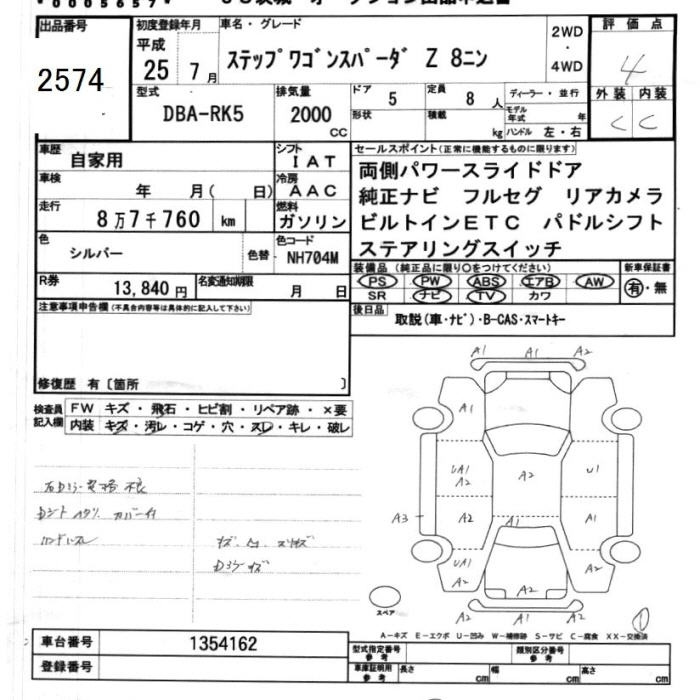 出品番号
2574
初度登録年月
平成
25 7月
車名・グレード
ステップワゴンスパーダ Z 8ニン
2WD
・
4WD
評価点
4
外装 内装
C C
型式
DBA-RK5
排気量
2000
CC
ドア
5
定員
8人
形状
積載
kg
ディーラー・並行
モデル年式 年
ハンドル 左・右
車歴
自家用
シフト
IAT
車検
年 月( 日)
冷房
AAC
走行
8万7千760 km
燃料
ガソリン
色
シルバー
色替
色コード
NH704M
R券
13,840円
名変通知期限
月 日
セールスポイント(正常に機能するものに限ります)
両側パワースライドドア
純正ナビ フルセグ リアカメラ
ビルトインETC パドルシフト
ステアリングスイッチ
装備品 (純正品に限り○をつけてください)
PS PW ABS エアB AW
SR ナビ TV カワ
新車保証書
有・無
後日品
取説(車・ナビ)・B-CAS・スマートキー
注意事項申告欄(不具合内容等は具体的に記入して下さい)
修復歴 有〔箇所 〕
検査員記入欄
FW キズ・飛石・ヒビ割・リペア跡・×要
内装 キズ・汚レ・コゲ・穴・スレ・キレ・破レ
A1 A1 A2
A1
UA1
A2
A2
U1
A3
A2
A1
A1
UA1
A2
A2
A2
A2
A2
スペア
A-キズ E-エクボ U-凹み W-補修跡 S-サビ C-腐食 XX-交換済
車台番号
1354162
登録番号
型式指定番号
参考
類別区分番号
参考
車庫証明用
参考
長さ cm
幅 cm
高さ cm